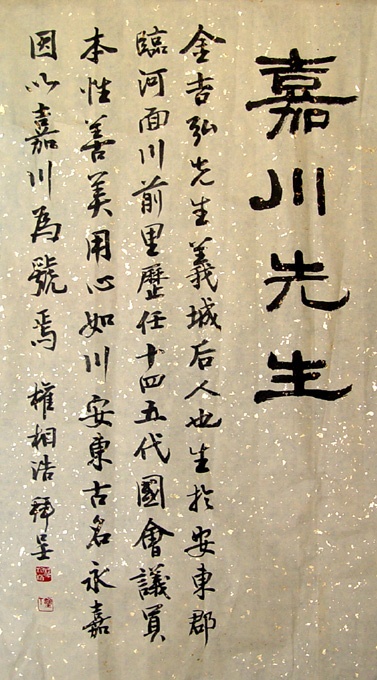 嘉川先生
金吉弘先生義城后人也生於安東郡
臨河面川前里歷任十四五代國會議員
本性善美用心如川安東古名永嘉
因以嘉川為號焉 權相浩 拜呈